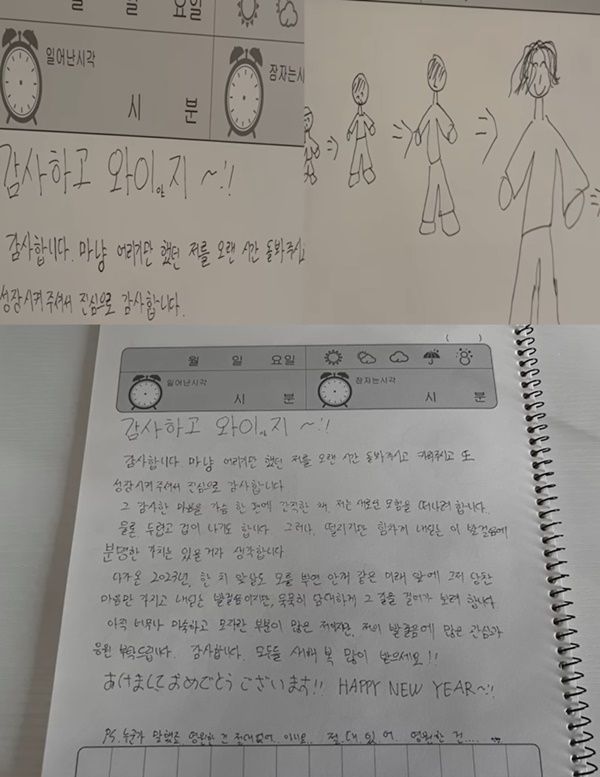 일 요일
일어난시각
잠자는시
시 분
감사하고 와이안지 ~!!
감사합니다. 마냥 어리기만 했던 저를 오랜 시간 돌봐주시고
성장시켜주셔서 진심으로 감사합니다.
( )
월 일 요일
일어난시각 시 분 잠자는시각 시 분
감사하고 와이안지 ~!!
감사합니다 마냥 어리기만 했던 저를 오랜 시간 돌봐주시고 키워주시고 또
성장시켜주셔서 진심으로 감사합니다
그 감사한 마음을 가슴 한 켠에 간직한 채, 저는 새로운 모험을 떠나려 합니다.
물론, 두렵고 겁이 나기도 합니다. 그러나, 떨리지만 힘차게 내딛는 이 발걸음에
분명한 가치는 있을거라 생각합니다
다가온 2023년, 한 치 앞날도 모를 뿌연 안개 같은 미래 앞에 그저 당찬
마음만 가지고 내딛는 발걸음이지만, 묵묵히 담대하게 그 길을 걸어가 보려 합니다.
아직 너무나 미숙하고 모자란 부분이 많은 저이지만, 저의 발걸음에 많은 관심과
응원 부탁드립니다. 감사합니다. 모두들 새해 복 많이 받으세요!!
あけましておめでとうございます!! HAPPY NEW YEAR~!!
PS. 누군가 말했죠 영원한 건 절대없어 아니요.. 절.대.있.어 영원한 건....